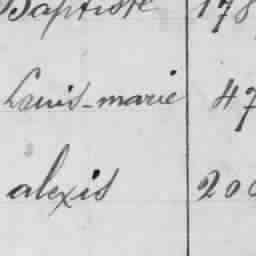 Baptiste 178
Louis-marie 47
alexis 200